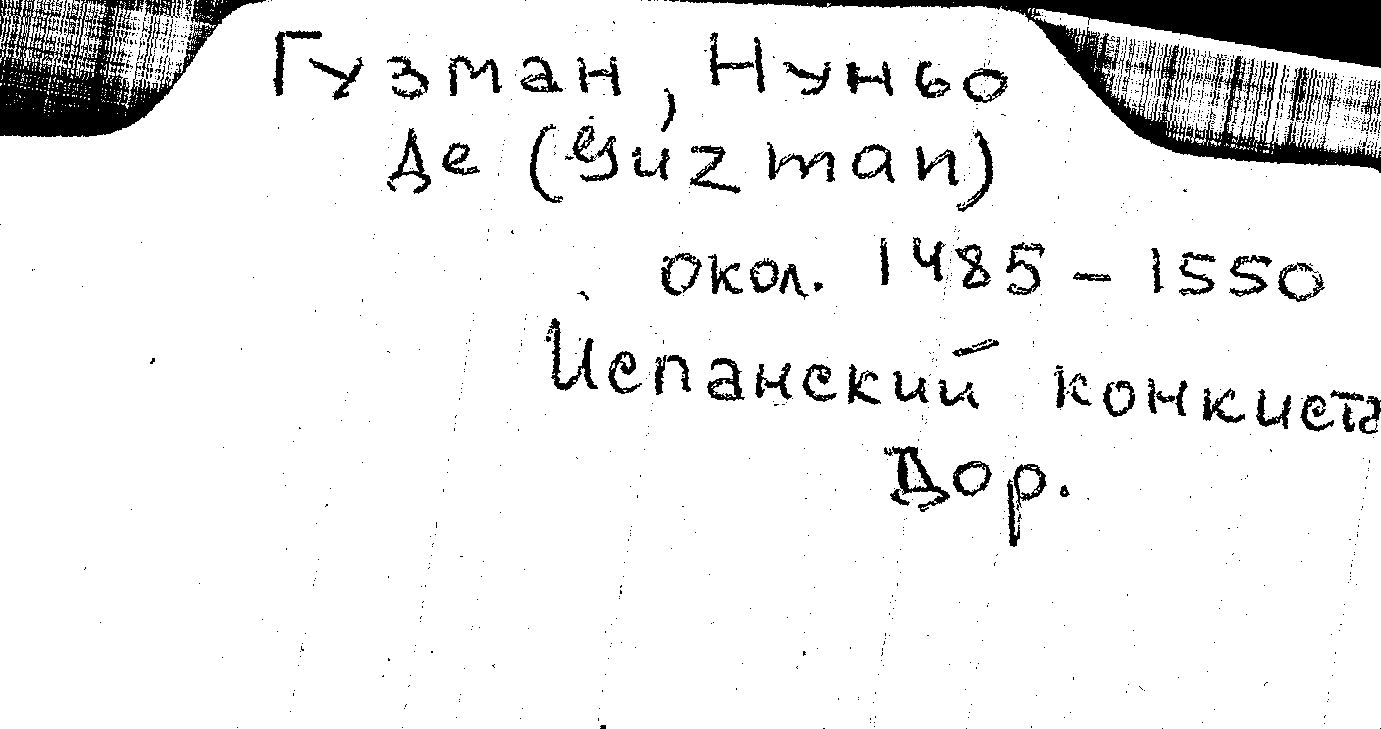 Гузман, Нуньо
Де (Guzman)
окол. 1485 – 1550
Испанский конкиста
Дор.